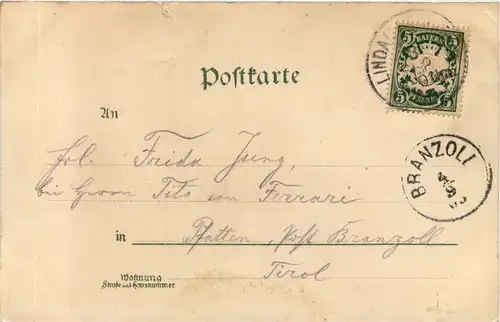 LINDAU
BAYERN
5 5
PFENNIG
Postkarte
An
Frl. Frida Jung,
bei Herrn Tito von Ferrari
BRANZOLL
4
9
03
in Pfatten Post Branzoll
Tirol
Wohnung
Straße und Hausnummer